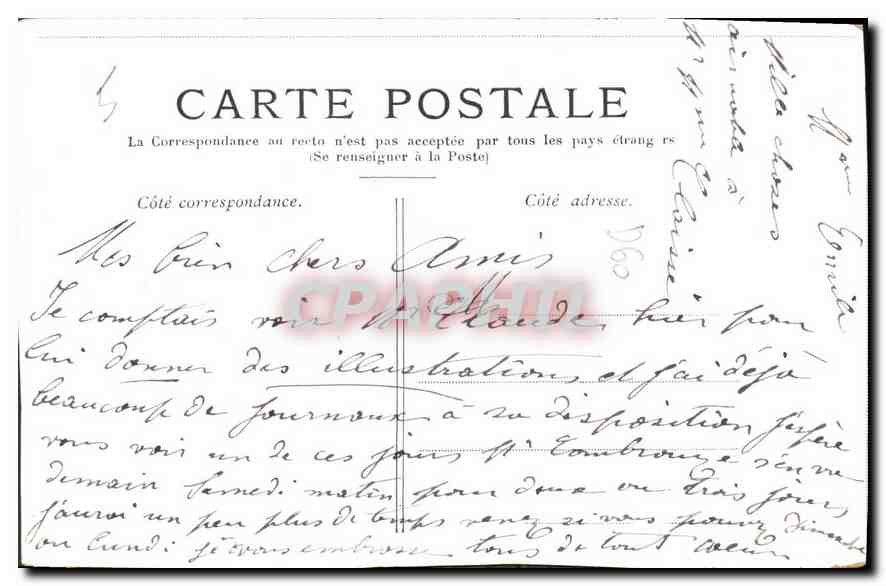 CARTE POSTALE
La Correspondance au recto n'est pas acceptée par tous les pays étrang rs
(Se renseigner à la Poste)
Côté correspondance.
Côté adresse.
D60
CPAPHIL
Mes bien chers Amis
Je comptais voir Claude, hier pour
lui donner des illustrations, et j'ai déjà
beaucoup de journaux à sa disposition j'espère
vous voir un de ces jours Mr s'en va
demain Samedi matin pour deux ou trois jours,
j'aurai un peu plus de temps venez si vous pouvez Dimanche
ou Lundi je vous embrasse tous de tout coeur
Mme Emile
Mille choses
aimable à
Mr et Mme